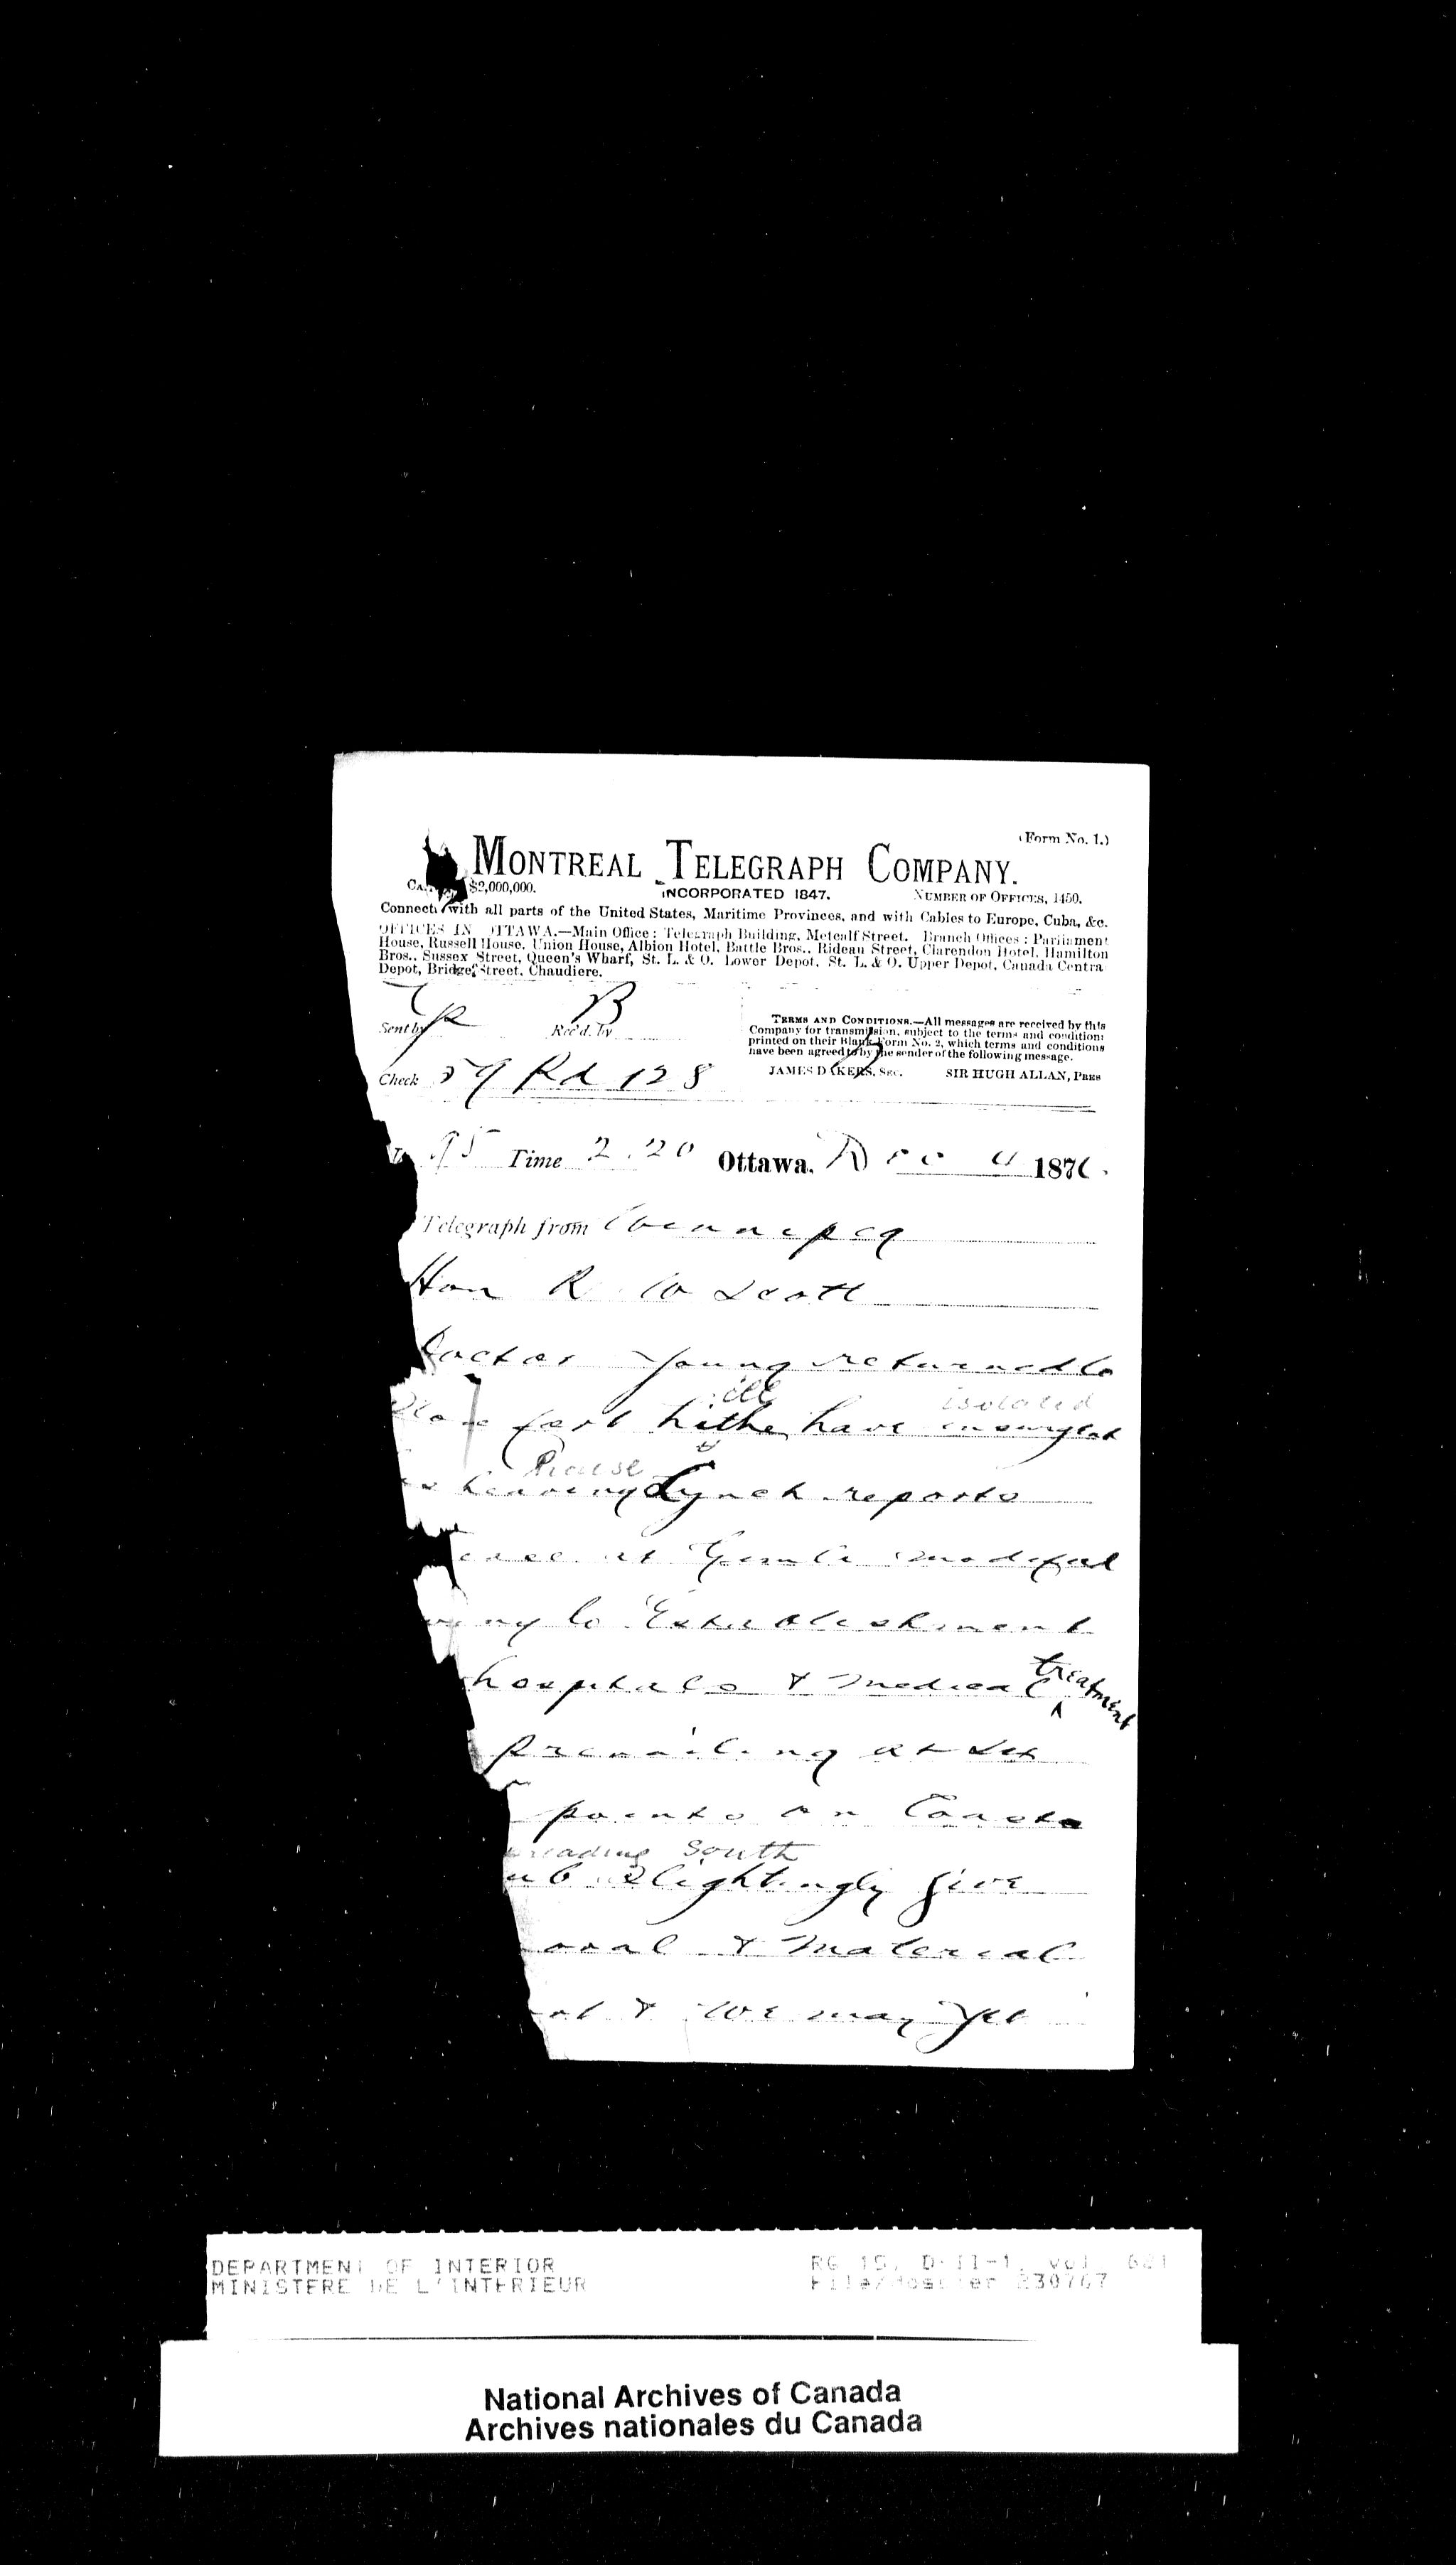 (Form No. 1.)
MONTREAL TELEGRAPH COMPANY.
$2,000,000. INCORPORATED 1847. NUMBER OF OFFICES, 1450.
with all parts of the United States, Maritime Provinces, and with Cables to Europe, Cuba, &c.
OFFICES IN OTTAWA.—Main Office: Telegraph Building, Metcalf Street. Branch Offices: Parliament
House, Russell House, Union House, Albion Hotel, Battle Bros., Rideau Street, Clarendon Hotel, Hamilton
Bros., Sussex Street, Queen's Wharf, St. L. & O. Lower Depot, St. L. & O. Upper Depot, Canada Centra
Depot, Bridge Street, Chaudiere.
Sent by Rec'd. by B
TERMS AND CONDITIONS.—All messages are received by this
Company for transmission, subject to the terms and conditions
printed on their Blank Form No. 2, which terms and conditions
have been agreed to by the sender of the following message.
JAMES DAKERS, Sec. SIR HUGH ALLAN, Pres
Check 59 Rd 128
95 Time 2.20 Ottawa, Dec 4 1876.
Telegraph from Winnipeg
Hon R W Scott
Doctor Young returned to
ill isolated
fort hithe have
house
Lynch reports
at Gimli modified
ing to Establishment
hospitals & medical treatment
prevailing at
points on Coasts
reading South
slightingly give
oral & material
& we may yet
DEPARTMENT OF INTERIOR
MINISTERE DE L'INTERIEUR
RG 15, D-II-1, vol 621
File/dossier 230767
National Archives of Canada
Archives nationales du Canada